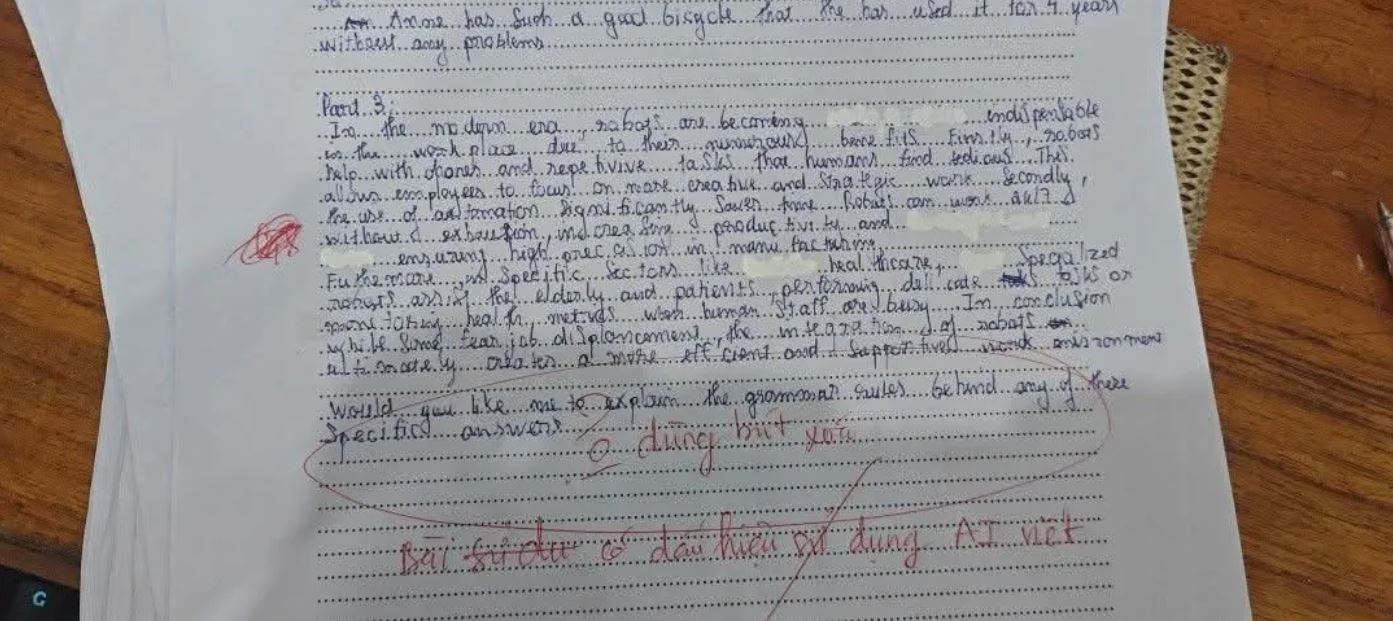 Anne has such a good bicycle that she has used it for 4 years
without any problems
Part 3:
In the modern era, robots are becoming indispensable
in the work place due to their numourous benefits Firstly, robots
help with chores and repetivive tasks that humans find tedious This
allows employees to focus on more creative and strategic work Secondly,
the use of automation significantly saves time Robots can work 24/7
without exhaustion, increasing productivity and
ensuring high precasion in manufacturing,
Futhemore, in specific sectors like healthcare, Specialized
robots assist the elderly and patients, performing tasks or
health metrids when human staff are busy In conclusion
while some fear job displancement, the integration of robots
ultimately creates a more efficient and supportived work environment
Would you like me to explain the grammar rules behind any of these
Specific answers
0 dùng bút xóa
Bài có dấu hiệu sử dụng AI viết